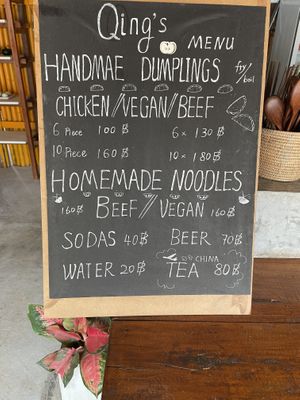 Qing's
MENU
HANDMAE DUMPLINGS fry/boil
CHICKEN/VEGAN/BEEF
6 Piece 100 ฿ 6x 130 ฿
10 Piece 160 ฿ 10x 180 ฿
HOMEMADE NOODLES
160 ฿ BEEF//VEGAN 160 ฿
SODAS 40 ฿ BEER 70 ฿
CHINA
WATER 20 ฿ TEA 80 ฿